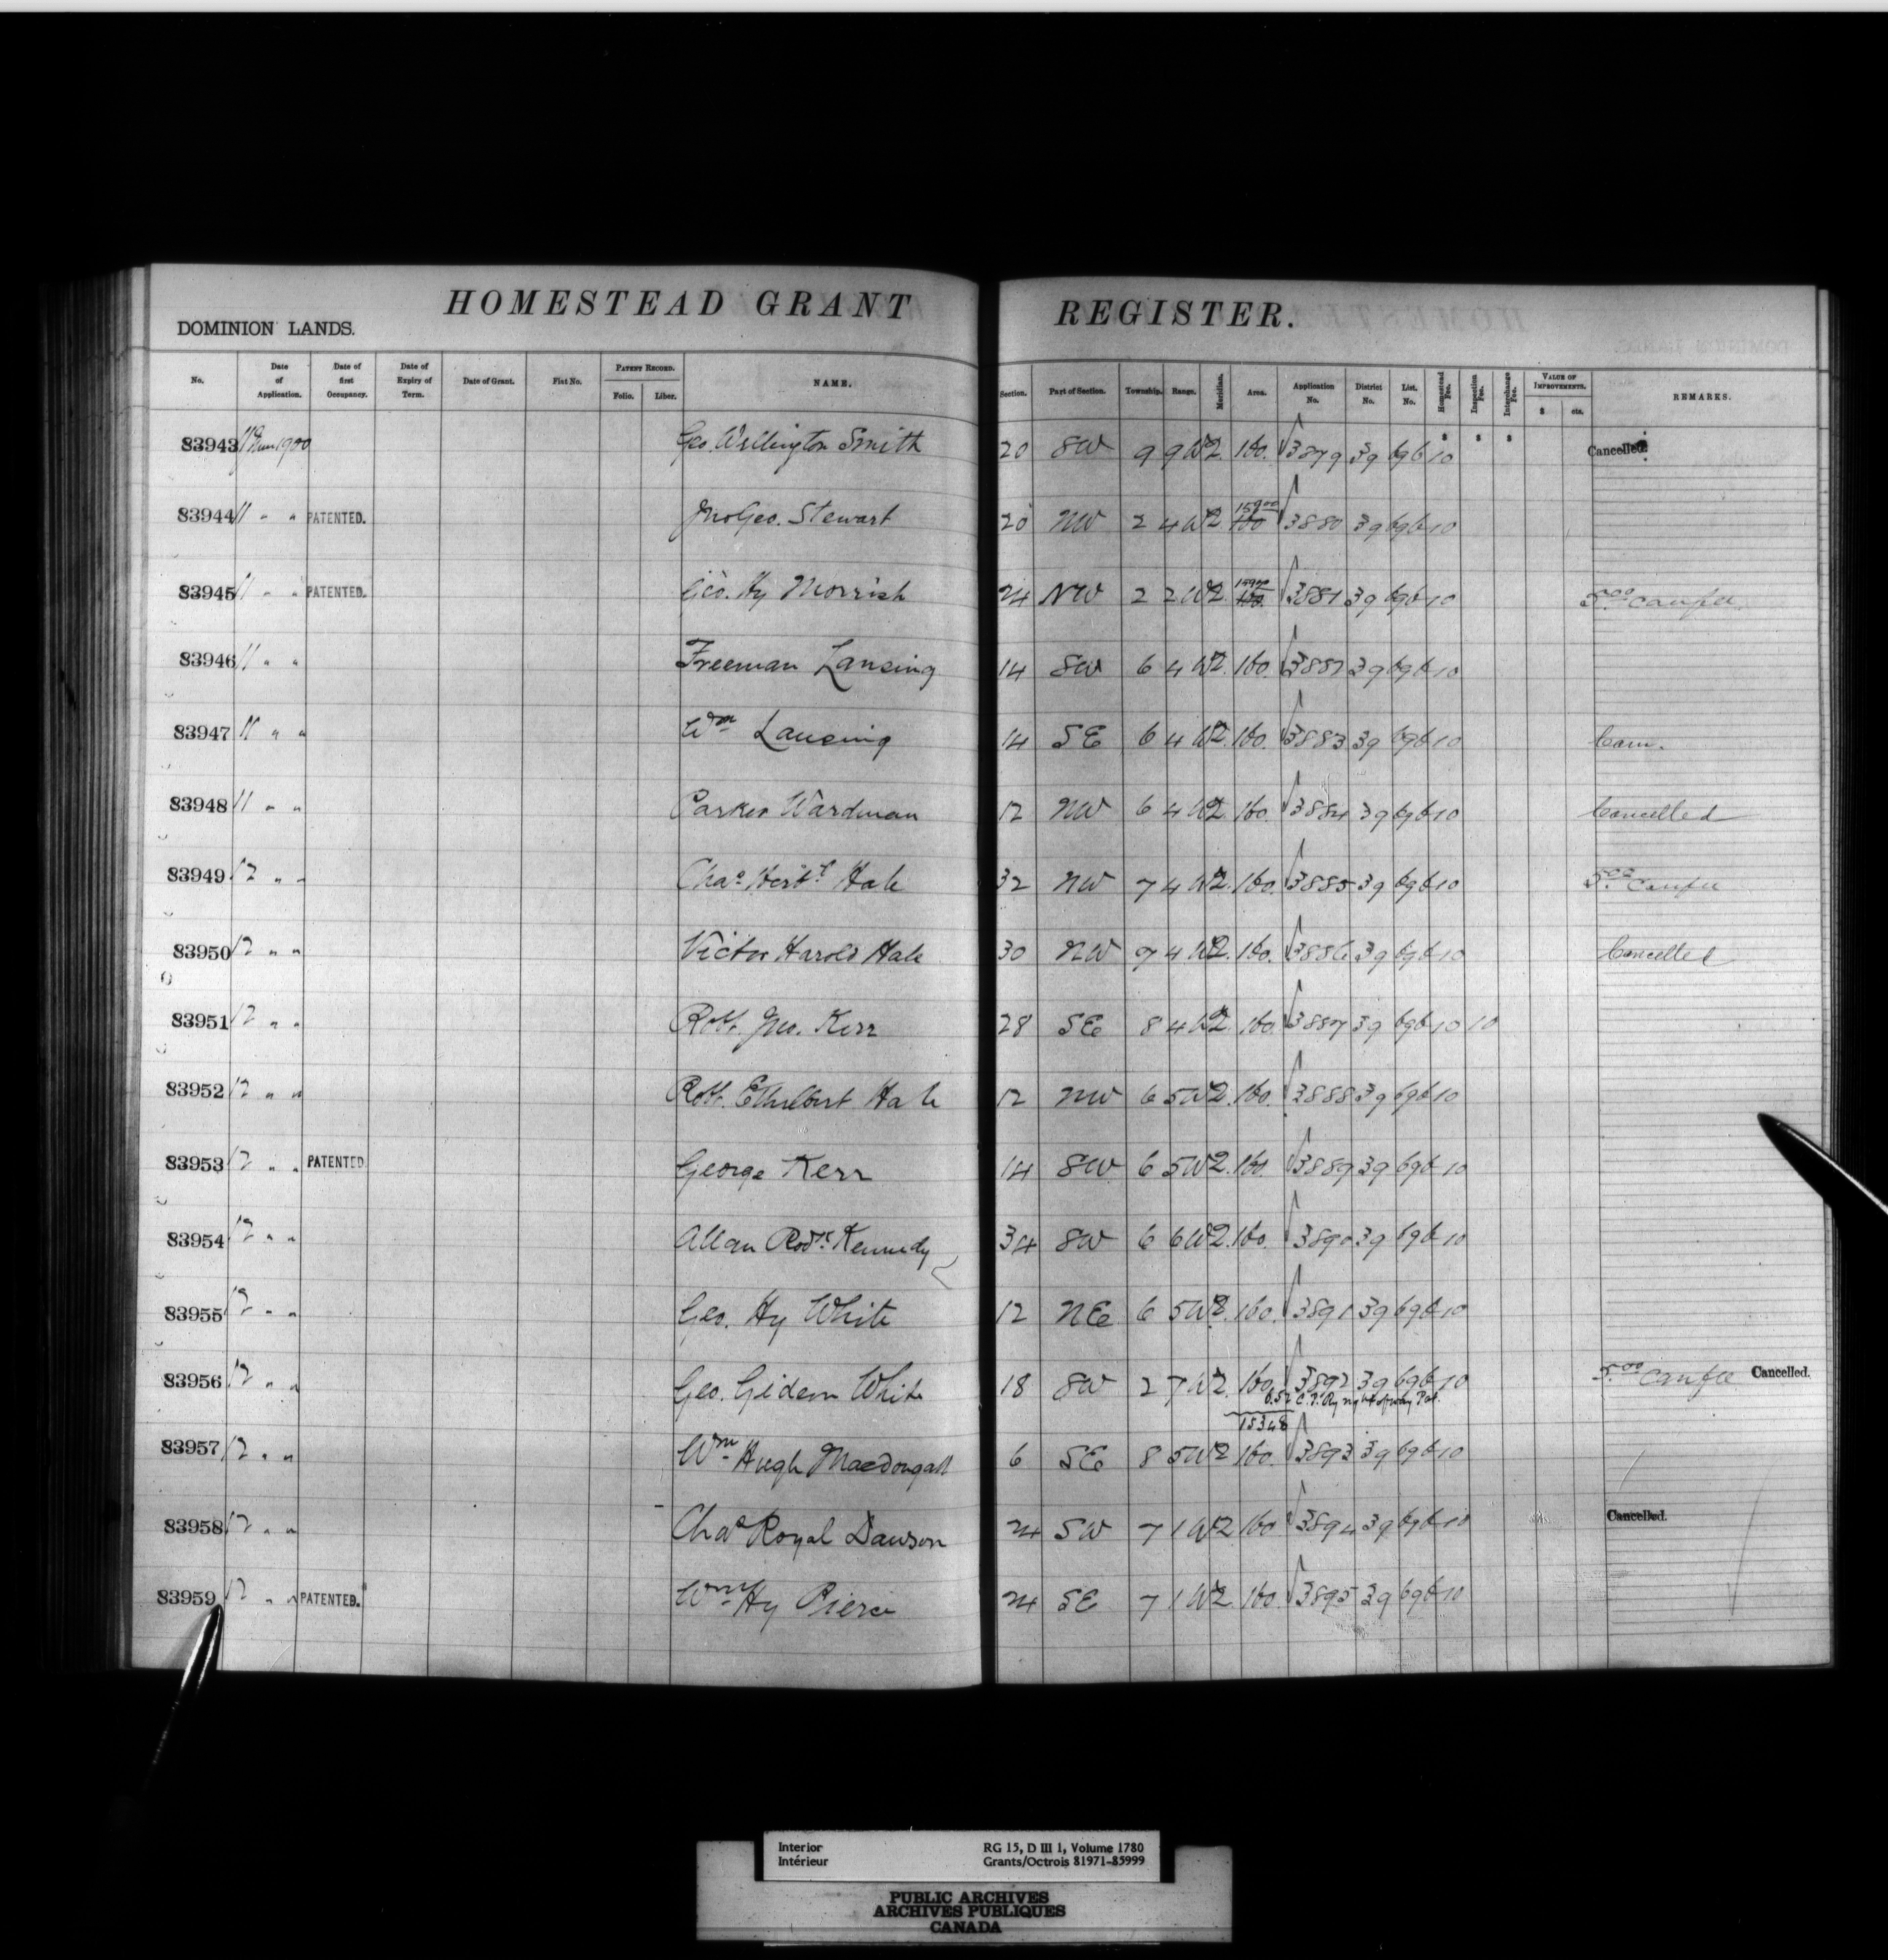 HOMESTEAD GRANT REGISTER.
DOMINION LANDS.
No. Date of Application. Date of first Occupancy. Date of Expiry of Term. Date of Grant. Fiat No. PATENT RECORD. Folio. Liber. NAME. Section. Part of Section. Township. Range. Meridian. Area. Application No. District No. List. No. Homestead Fee. Inspection Fee. Interchange Fee. VALUE OF IMPROVEMENTS. $ cts. REMARKS.
83943 11 1900 Geo. Wellington Smith 20 SW 9 9 W2 160. 3879 39 696 10 Cancelled.
83944 11 " " PATENTED. Jno Geo. Stewart 20 NW 2 4 W2 159.00 160 3880 39 696 10
83945 11 " " PATENTED. Geo. Hy Morrish 24 NW 2 2 W2 160. 3881 39 696 10 5.00
83946 11 " " Freeman Lansing 14 SW 6 4 W2 160. 3882 39 696 10
83947 11 " " Wm Lansing 14 SE 6 4 W2 160. 3883 39 696 10
83948 11 " " Parker Wardman 12 NW 6 4 W2 160. 3884 39 696 10 Cancelled
83949 12 " " Chas Herbt Hale 32 NW 7 4 W2 160. 3885 39 696 10 5.00
83950 12 " " Victor Harold Hale 30 NW 7 4 W2 160. 3886 39 696 10 Cancelled
83951 12 " " Robt. Jno. Kerr 28 SE 8 4 W2 160. 3887 39 696 10 10
83952 12 " " Robt. Ethelbert Hale 12 NW 6 5 W2 160. 3888 39 696 10
83953 12 " " PATENTED George Kerr 14 SW 6 5 W2 160. 3889 39 696 10
83954 12 " " Allan Rodk Kennedy 34 SW 6 6 W2 160. 3890 39 696 10
83955 12 " " Geo. Hy White 12 NE 6 5 W2 160. 3891 39 696 10
83956 12 " " Geo. Gideon White 18 SW 2 7 W2 160. 3892 39 696 10 5.00 Cancelled.
6.52 C.P. Ry right of way Pat.
153.48
83957 12 " " Wm Hugh Macdougall 6 SE 8 5 W2 160. 3893 39 696 10
83958 12 " " Chas Royal Dawson 24 SW 7 1 W2 160 3894 39 696 10 Cancelled.
83959 12 " " PATENTED. Wm Hy Pierce 24 SE 7 1 W2 160. 3895 39 696 10
Interior RG 15, D III 1, Volume 1780
Intérieur Grants/Octrois 81971-85999
PUBLIC ARCHIVES
ARCHIVES PUBLIQUES
CANADA